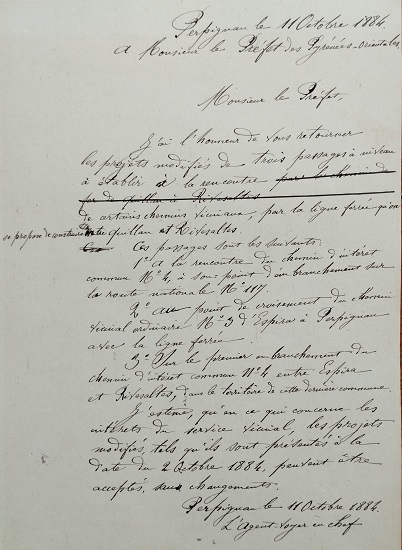 Perpignan le 11 Octobre 1884.
A Monsieur le Préfet des Pyrénées-Orientales
Monsieur le Préfet,
J'ai l'honneur de vous retourner
les projets modifiés de trois passages à niveau
à établir à la rencontre par le chemin de
fer de Quillan à Rivesaltes
de certains chemins vicinaux, par la ligne ferrée qu'on
se propose de construire entre Quillan et Rivesaltes.
Ces passages sont les suivants:
1º à la rencontre du chemin d'intérêt
commun Nº 4, à son point d'embranchement sur
la route nationale Nº 117.
2º au point de croisement du chemin
vicinal ordinaire Nº 3 d'Espira à Perpignan
avec la ligne ferrée.
3º Sur le premier embranchement du
chemin d'intérêt commun Nº 4 entre Espira
et Rivesaltes, dans le territoire de cette dernière commune.
J'estime, qu'en ce qui concerne les
intérêts du service vicinal, les projets
modifiés, tels qu'ils sont présentés à la
date du 2 Octobre 1884, peuvent être
acceptés, sans changements.
Perpignan le 11 Octobre 1884.
L'Agent-Voyer en chef